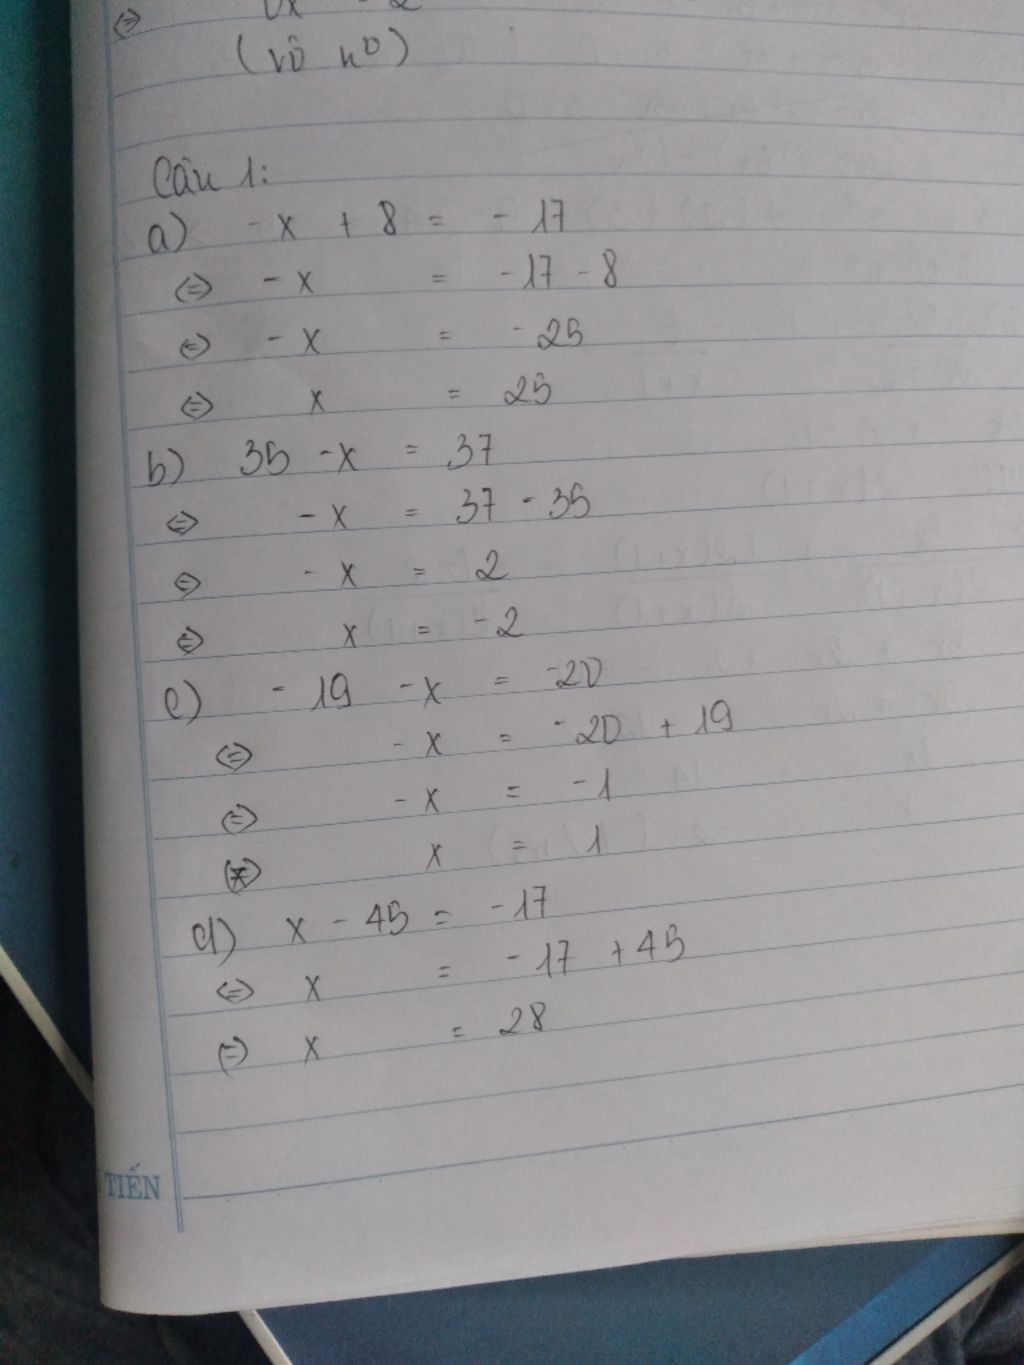 ⇔ 0x = 2
(vô n⁰)
Câu 1:
a) - x + 8 = - 17
⇔ - x = - 17 - 8
⇔ - x = - 25
⇔ x = 25
b) 35 - x = 37
⇔ - x = 37 - 35
⇔ - x = 2
⇔ x = - 2
c) - 19 - x = - 20
⇔ - x = - 20 + 19
⇔ - x = - 1
⇔ x = 1
d) x - 45 = - 17
⇔ x = - 17 + 45
⇔ x = 28
TIẾN